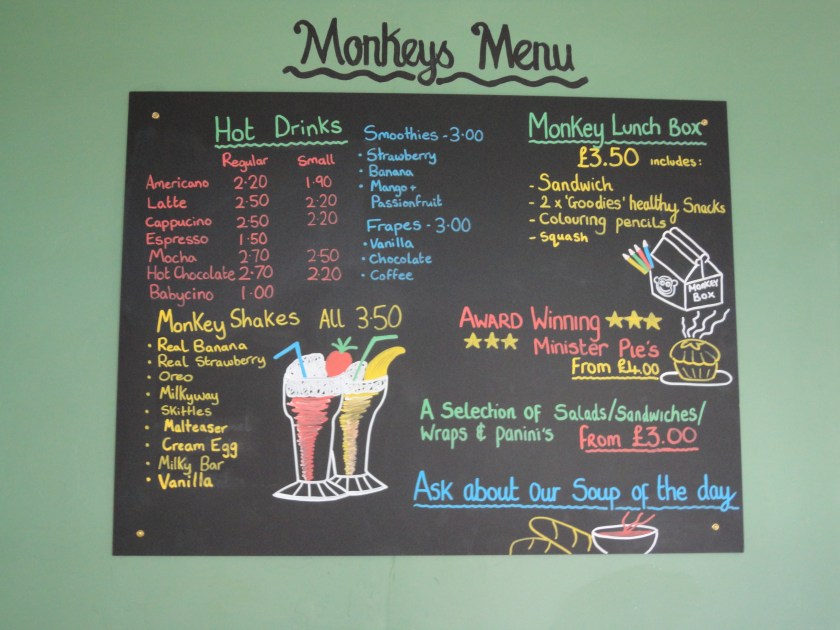 Monkeys Menu
Hot Drinks
Regular Small
Americano 2·20 1·90
Latte 2·50 2·20
Cappucino 2·50 2·20
Espresso 1·50
Mocha 2·70 2·50
Hot Chocolate 2·70 2·20
Babycino 1·00
Smoothies - 3·00
• Strawberry
• Banana
• Mango +
Passionfruit
Frapes - 3·00
• Vanilla
• Chocolate
• Coffee
Monkey Lunch Box
£3.50 includes:
- Sandwich
- 2 x 'Goodies' healthy Snacks
- Colouring pencils
- Squash
MONKEY
BOX
Monkey Shakes All 3·50
• Real Banana
• Real Strawberry
• Oreo
• Milkyway
• Skittles
• Malteaser
• Cream Egg
• Milky Bar
• Vanilla
Award Winning
Minister Pie's
From £4.00
A Selection of Salads/Sandwiches/
Wraps & Panini's From £3.00
Ask about our Soup of the day